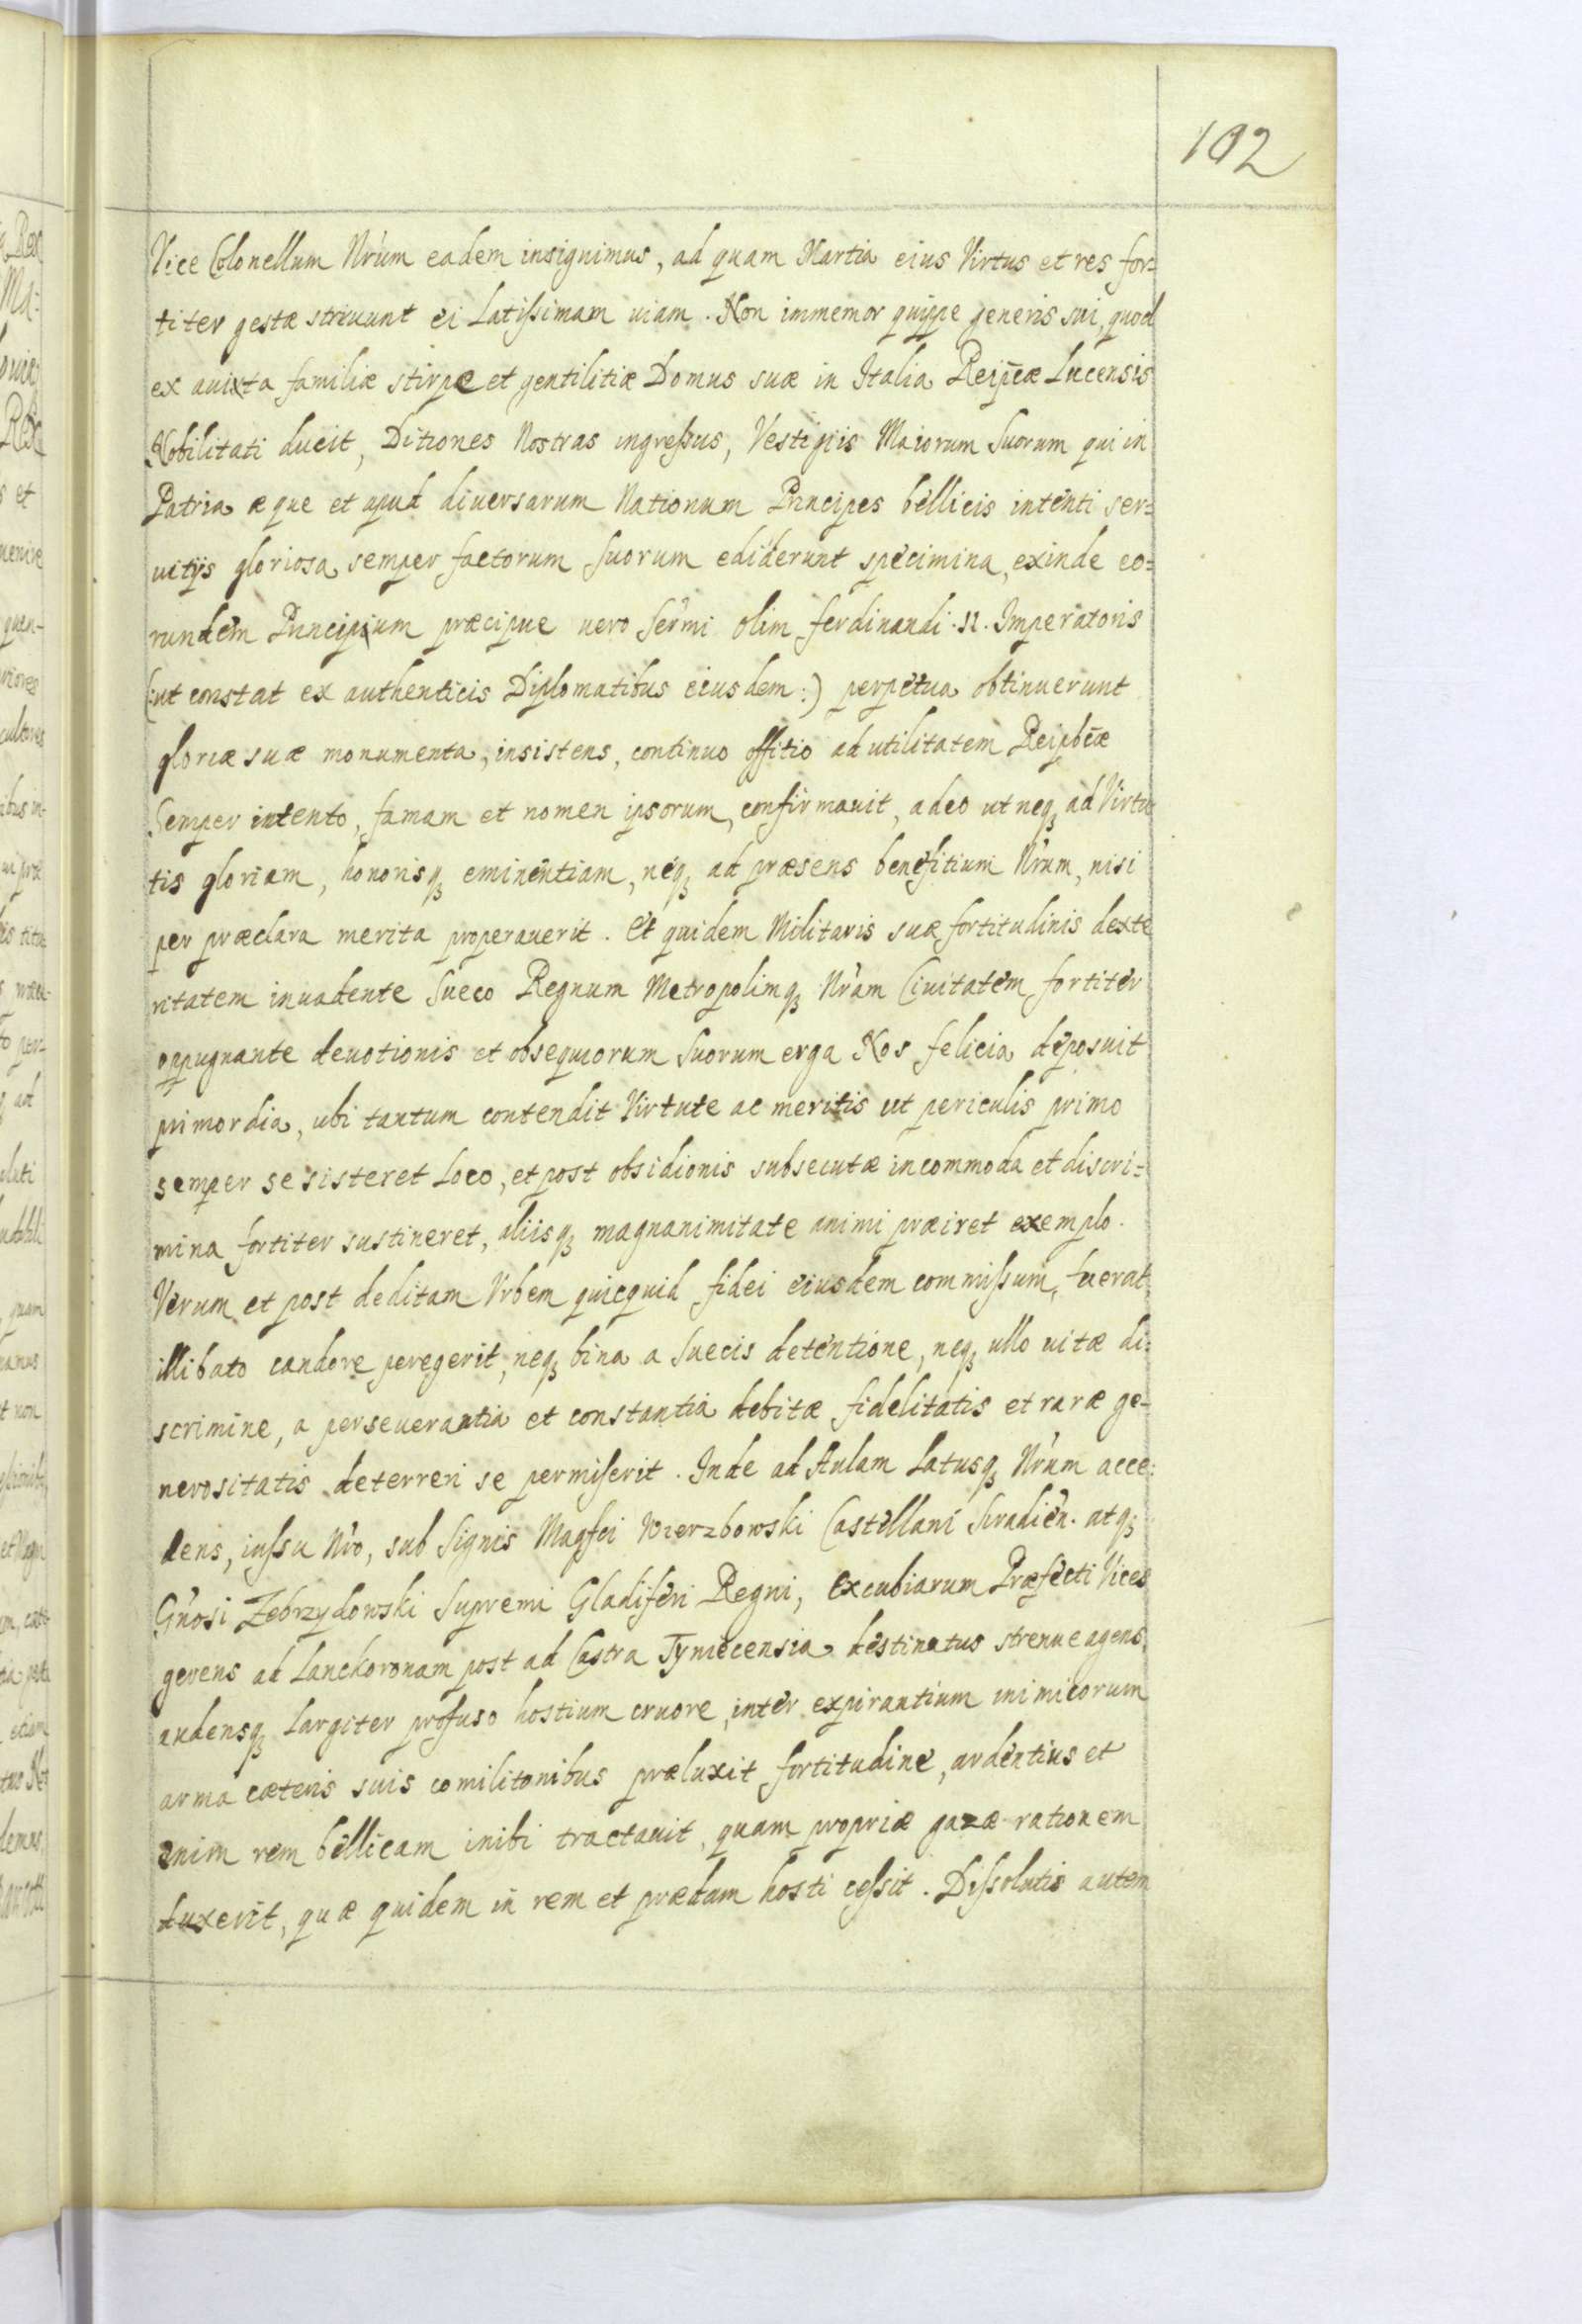 102
Vice Colonellum Nr̃um eadem insignimus, ad quam Martia eius Virtus et res for=
titer gestæ struunt ei Latißimam uiam. Non immemor quippe generis sui, quod
ex auixta familiæ stirpe et gentilitiæ Domus suæ in Italia Reip̃cæ Lucensis
Nobilitati ducit, Ditiones Nostras ingreßus, Vestigiis Maiorum Suorum qui in
Patria æque et apud diuersarum Nationum Principes bellicis intenti ser=
uitijs gloriosa semper factorum Suorum ediderunt specimina, exinde eo=
rundem Principium præcipue uero Ser̃mi olim ferdinandi .II. Imperatoris
(:ut constat ex authenticis Diplomatibus eiusdem:) perpetua obtinuerunt
gloriæ suæ monumenta, insistens, continuo offitio ad utilitatem Reipb̃cæ
Semper intento, famam et nomen ipsorum, confirmauit, adeo ut neqꝫ ad Virtu
tis gloriam, honorisqꝫ eminentiam, neqꝫ ad præsens benefitium Nr̃um, nisi
per præclara merita properauerit. Et quidem Militaris suæ fortitudinis dexte
ritatem inuadente Sueco Regnum Metropolimqꝫ Nr̃am Ciuitatem fortiter
oppugnante deuotionis et obsequiorum Suorum erga Nos felicia deposuit
primordia, ubi tantum contendit Virtute ac meritis ut periculis primo
semper se sisteret Loco, et post obsidionis subsecutæ incommoda et discri=
mina fortiter sustineret, aliisqꝫ magnanimitate animi præiret exemplo.
Verum et post deditam Vrbem quicquid fidei eiusdem commißum, fuerat
illibato candore peregerit, neqꝫ bina a Suecis detentione, neqꝫ ullo uitæ di=
scrimine, a perseuerantia et constantia debitæ fidelitatis et raræ ge=
nerositatis deterreri se permiserit. Inde ad Aulam Latusqꝫ Nr̃um acce=
dens, iußu Nr̃o, sub Signis Magfci Wierzbowski Castellani Siradien̄. atqꝫ
Gn̄osi Zebrzydowski Supremi Gladiferi Regni, Excubiarum Præfecti Vices
gerens ad Lanckoronam post ad Castra Tyniecensia destinatus strenue agens
audensqꝫ Largiter profuso hostium cruore, inter expirantium inimicorum
arma cæteris suis comilitonibus præluxit fortitudine, ardentius et
enim rem bellicam inibi tractauit, quam propriæ gazæ rationem
duxerit, quæ quidem in rem et prædam hosti ceßit. Dißolutis autem